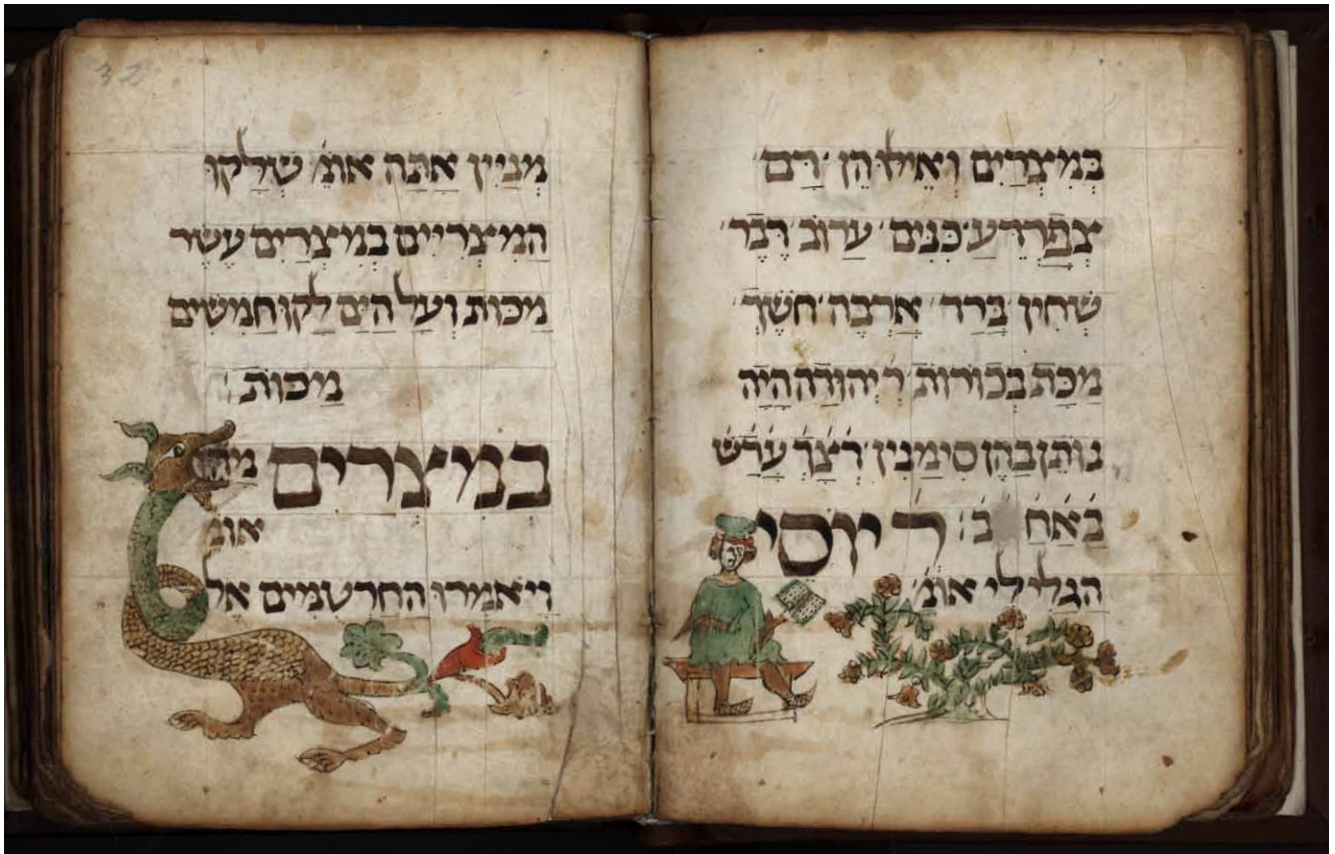 במצרים ואילו הן דם
צפרדע כנים ערוב דבר
שחין ברד ארבה חשך
מכת בכורות ר' יהודה היה
נותן בהן סימנין דצך עדש
באח ב :
ר יוסי
הגלילי אומ'
32
מניין אתה אומ' שלקו
המצריים במצרים עשר
מכות ועל הים לקו חמשים
מכות :
במצרים מהו
אומ
ויאמרו החרטמים אל